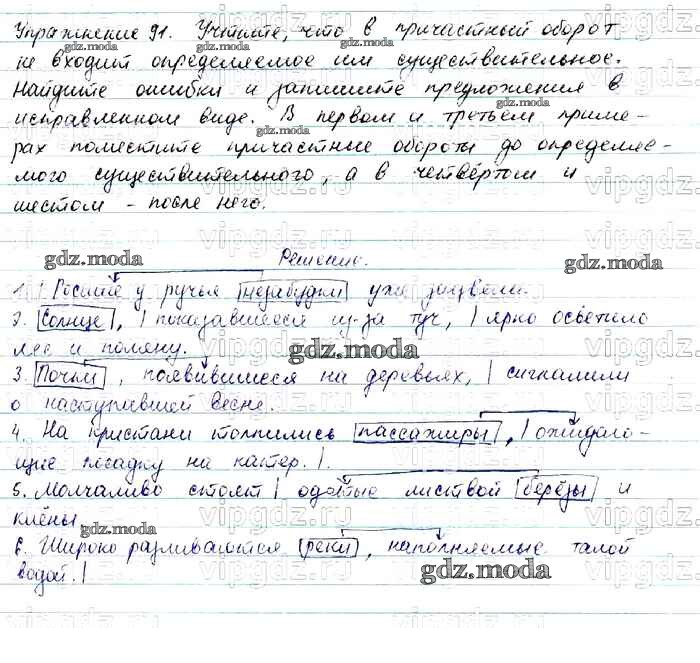 Упражнение 91. Учтите, что в причастный оборот
не входит определяемое им существительное.
Найдите ошибки и запишите предложения в
исправленном виде. В первом и третьем приме-
рах поместите причастные обороты до определяе-
мого существительного, а в четвёртом и
шестом - после него.
Решение.
1. | Росшие у ручья незабудки уже зацвели.
2. Солнце, | показавшееся из-за туч, | ярко осветило
лес и поляну.
3. Почки, появившиеся на деревьях, | сигналили
о наступавшей весне.
4. На пристани толпились пассажиры, | ожидаю-
щие посадку на катер. |.
5. Молчаливо стоят | одетые листвой берёзы и
клёны
6. Широко разливаются реки, наполняемые талой
водой. |
gdz.moda
vipgdz